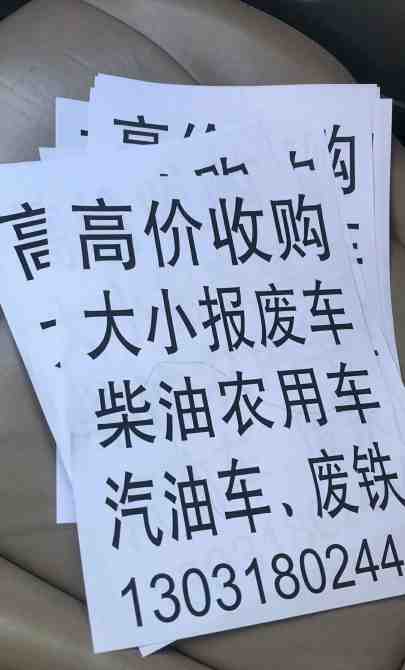 高价收购
大小报废车
柴油农用车
汽油车、废铁
1303180244